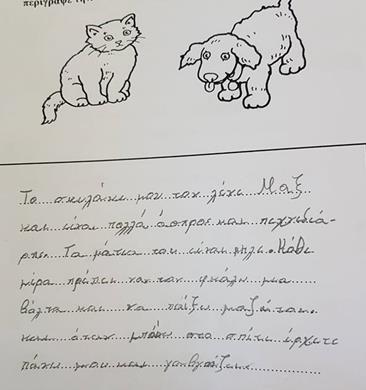 περιγραψε τη
Το σκυλάκι μου τον λένε Μαξ
και είναι πολλά άσπρος και πεχνιδιά-
ρης. Τα μάτια του είναι μπλε. Κάθε
μέρα πρέπει να τον φκάλω μια
βόλτα και να παίξω μαζί του.
και όταν μπαίνω στο σπίτι έρχετε
πάνω μου και γαβγίζει